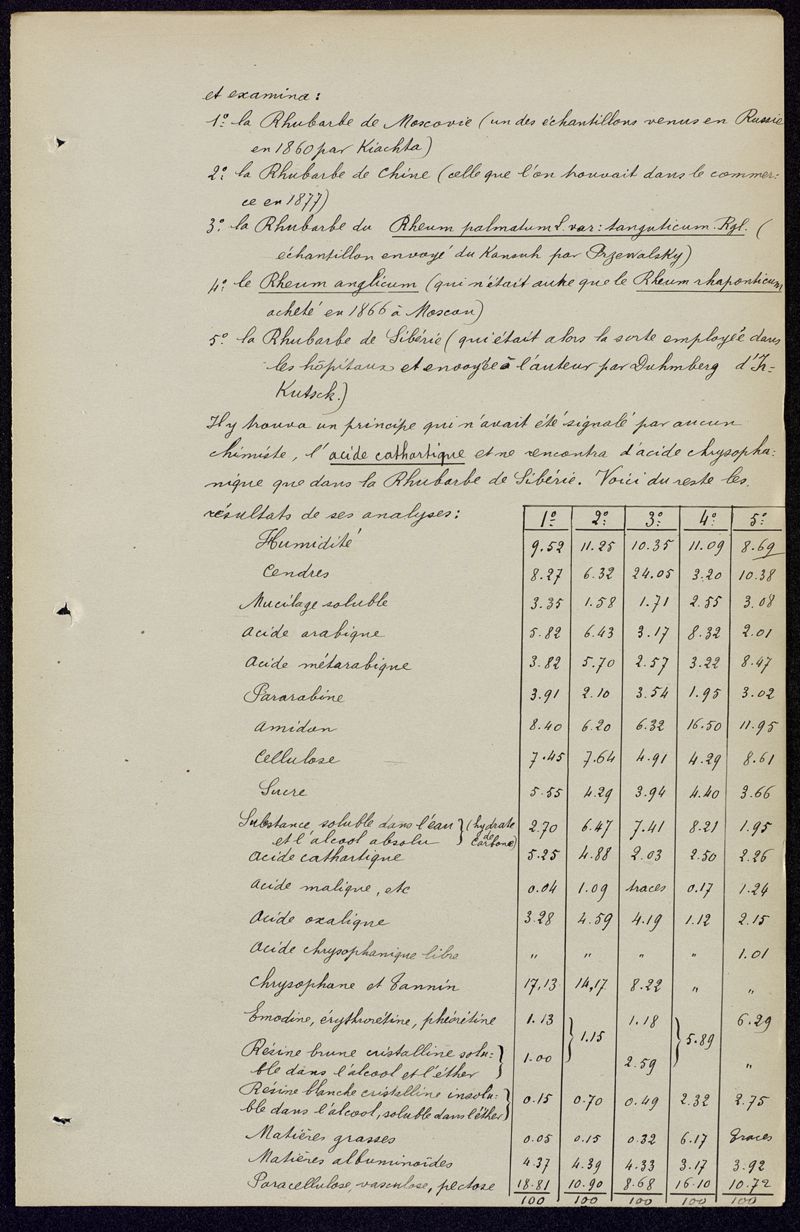 et examina :
1º la Rhubarbe de Moscovie (un des échantillons venus en Russie
en 1860 par Kiachta)
2º la Rhubarbe de Chine (celle que l'on trouvait dans le commer:
ce en 1877)
3º la Rhubarbe du Rheum palmatum L. var: tanguticum Rgl. (
échantillon envoyé du Kansuh par Przewalsky)
4º le Rheum anglicum (qui n'était autre que le Rheum rhaponticum
acheté en 1866 à Moscou)
5º la Rhubarbe de Sibérie (qui était alors la sorte employée dans
les hôpitaux et envoyée à l'auteur par Duhmberg d'Ir=
Kutsck.)
Il y trouva un principe qui n'avait été signalé par aucun
chimiste, l'acide cathartique et ne rencontra d'acide chrysopha:
nique que dans la Rhubarbe de Sibérie. Voici du reste les
résultats de ses analyses : 1º 2º 3º 4º 5º
Humidité 9.52 11.25 10.35 11.09 8.69
Cendres 8.27 6.32 24.05 3.20 10.38
Mucilage soluble 3.35 1.58 1.71 2.55 3.08
Acide arabique 5.82 6.43 3.17 8.32 2.01
Acide métarabique 3.82 5.70 2.57 3.22 8.47
Pararabine 3.91 2.10 3.54 1.95 3.02
Amidon 8.40 6.20 6.32 16.50 11.95
Cellulose 7.45 7.64 4.91 4.29 8.61
Sucre 5.55 4.29 3.94 4.40 3.66
Substance soluble dans l'eau } (hydrate
et l'alcool absolu de carbone) 2.70 6.47 7.41 8.21 1.95
Acide cathartique 5.25 4.88 2.03 2.50 2.26
Acide malique, etc 0.04 1.09 traces 0.17 1.24
Acide oxalique 3.28 4.59 4.19 1.12 2.15
Acide chrysophanique libre " " " " 1.01
Chrysophane et Tannin 17,13 14,17 8.22 " "
Emodine, érythrorétine, phéorétine 1.13 } 1.15 1.18 } 5.89 6.29
Résine brune cristalline solu: }
ble dans l'alcool et l'éther 1.00 2.59 "
Résine blanche cristalline insolu: }
ble dans l'alcool, soluble dans l'éther 0.15 0.70 0.49 2.32 2.75
Matières grasses 0.05 0.15 0.32 6.17 Traces
Matières albuminoïdes 4.37 4.39 4.33 3.17 3.92
Paracellulose, vasculose, pectose 18.81 10.90 8.68 16.10 10.72
100 100 100 100 100